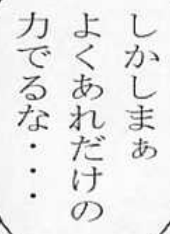 しかしまぁ
よくあれだけの
力でるな・・・